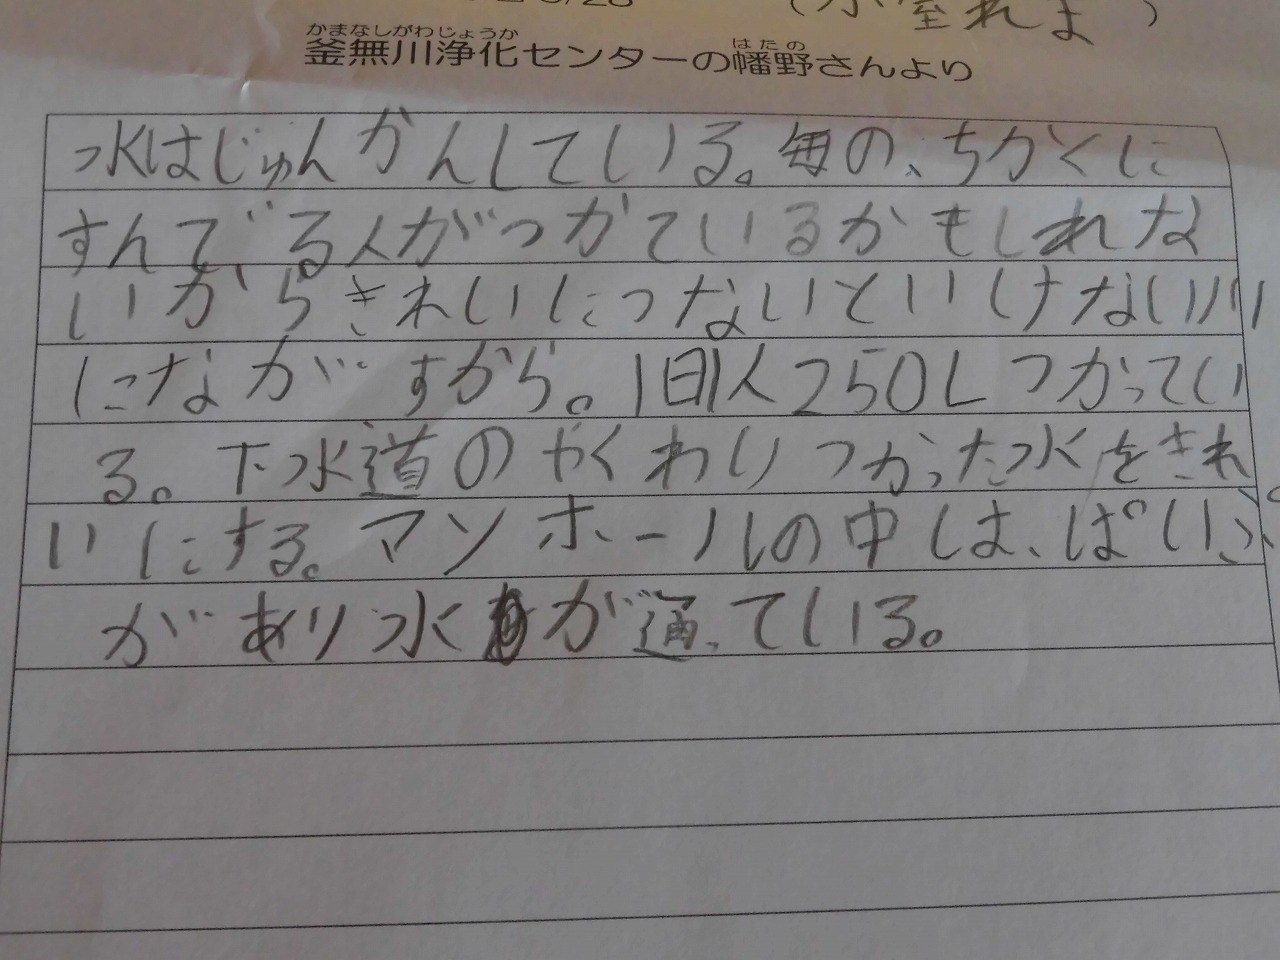 小室れよ)
かまなしがわじょうか はたの
釜無川浄化センターの幡野さんより
水はじゅんかんしている。毎の、ちかくに
すんでる人がつかているかもしれな
いからきれいにつないといけない川
にながすから。1日1人250Lつかってい
る。下水道のやくわりつかった水をきれ
いにする。マンホールの中しは、ぱいぷ
があり水が通っている。